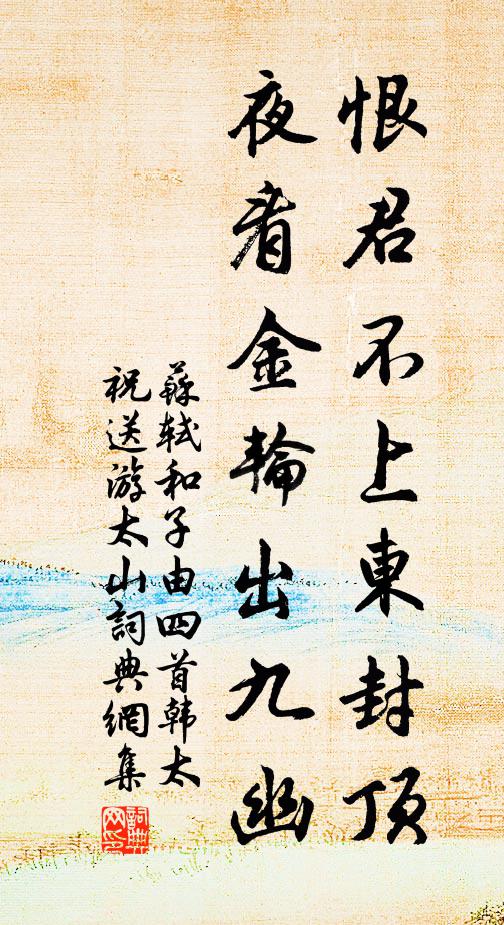 恨君不上東封頂
夜看金輪出九幽
蘇軾和子由四首韩太
祝送游太山詞典網集
詞典网印